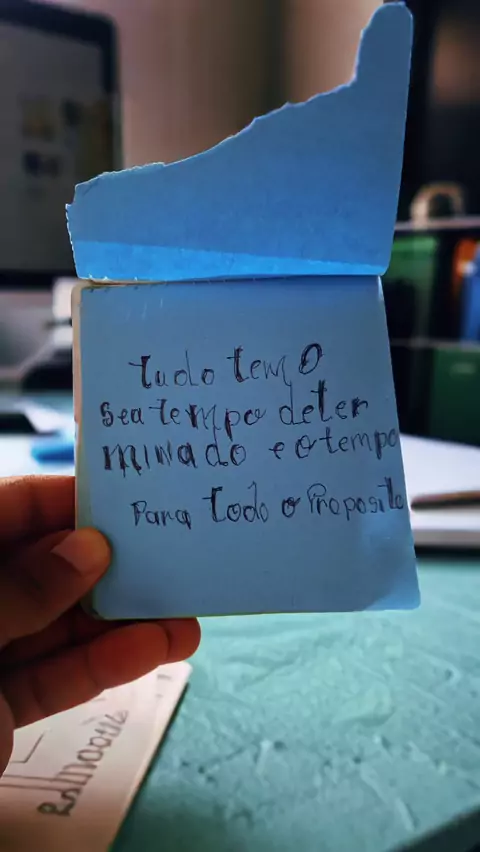 Tudo tem O
Seu tempo deter
minado e o tempo
Para todo o Proposito